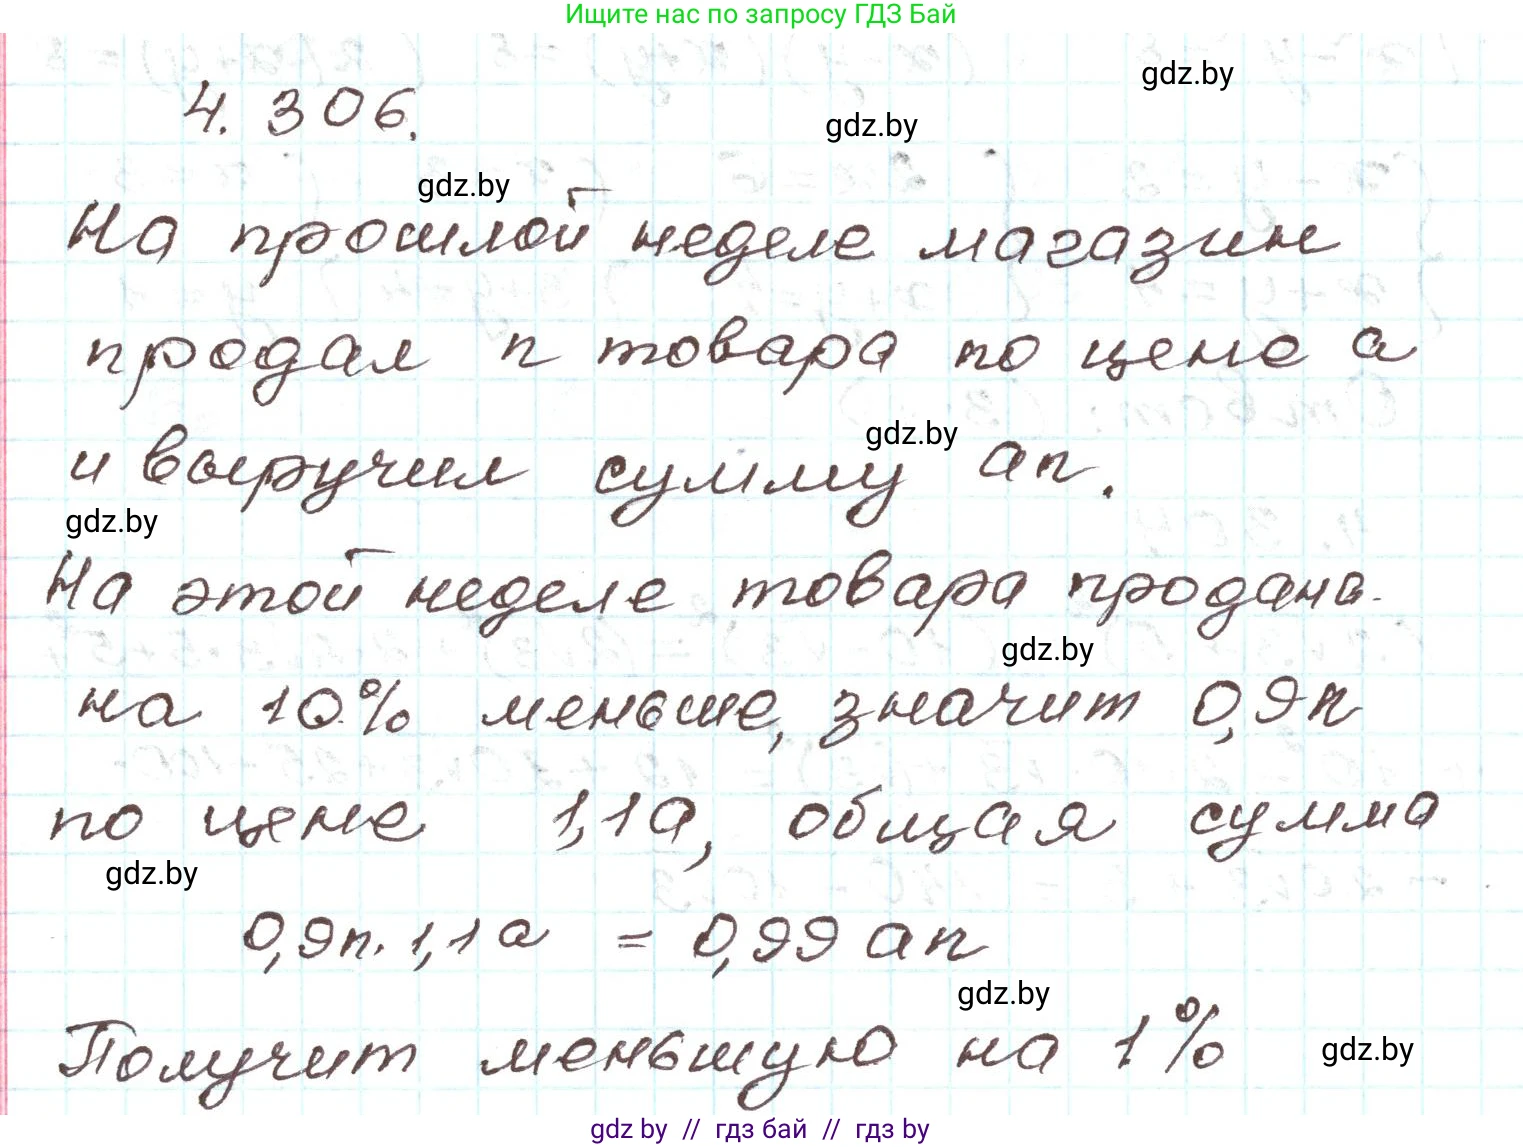 Ищите нас по запросу ГДЗ Бай
gdz.by
4.306.
gdz.by
gdz.by
На прошлой неделе магазин
продал n товара по цене a
gdz.by
и выручил сумму an.
gdz.by
На этой неделе товара продана
gdz.by
на 10% меньше, значит 0,9n
по цене 1,1a, общая сумма
gdz.by
0,9n · 1,1a = 0,99 an
gdz.by
Получит меньшую на 1%
gdz.by
gdz by // гдз бай // гдз by